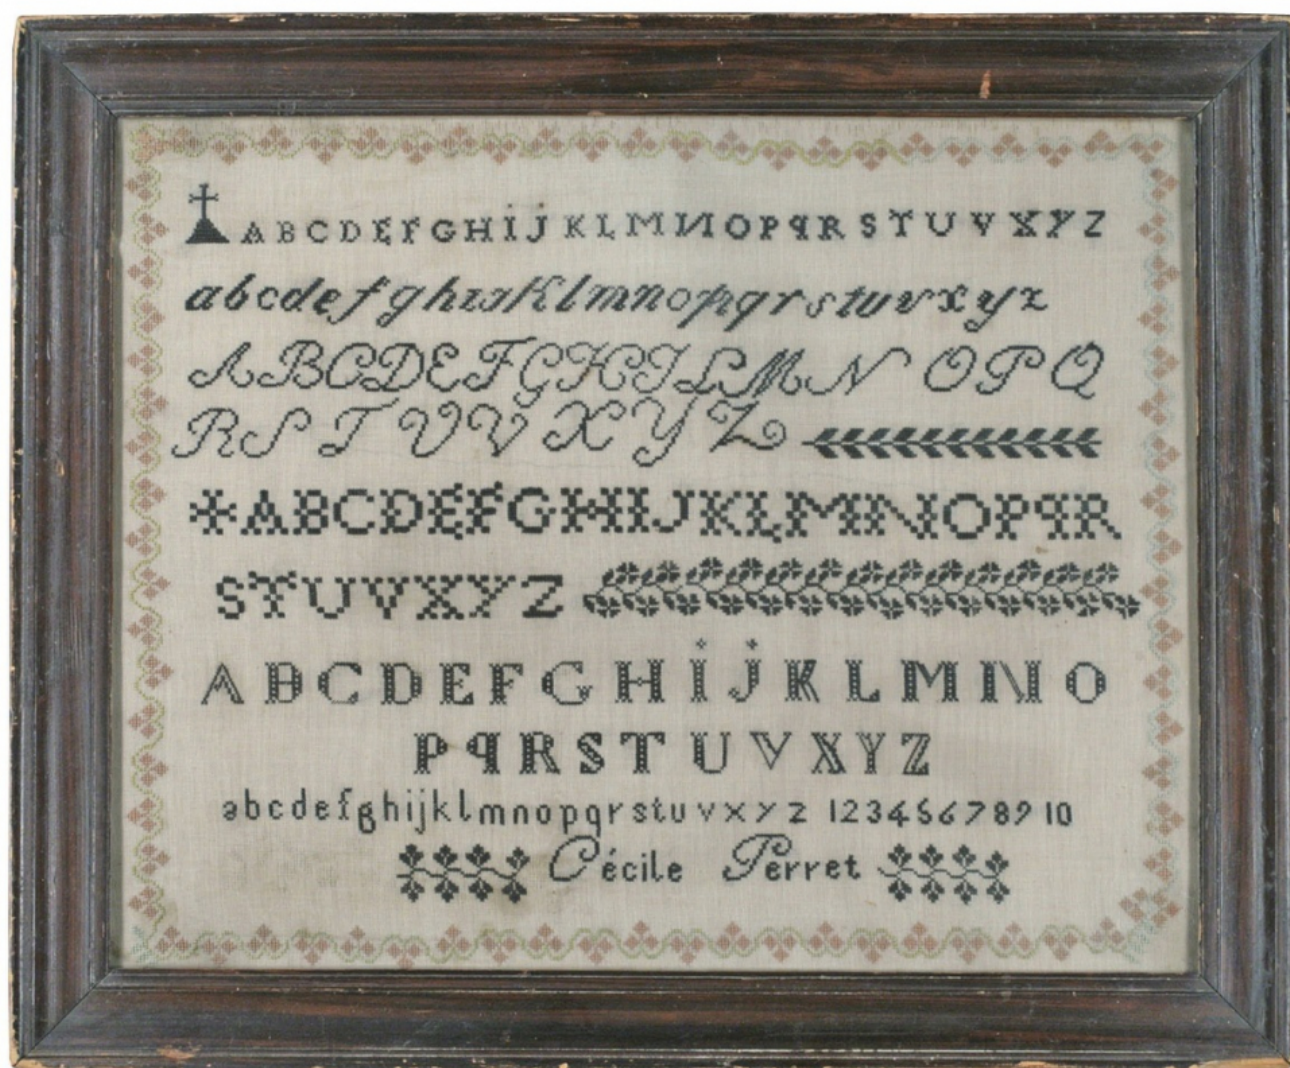 ABCDEFGHIJKLMNOPQRSTUVXYZ
abcdefghıȷKlmnopqrstuvxyz
ABCDEFGHILMNOPQ
RSTUVXYZ
ABCDEFGHIJKLMNOPQR
STUVXYZ
ABCDEFGHIJKLMNO
PQRSTUVXYZ
abcdefghijklmnopqrstuvxyz 12345678910
Cécile Perret